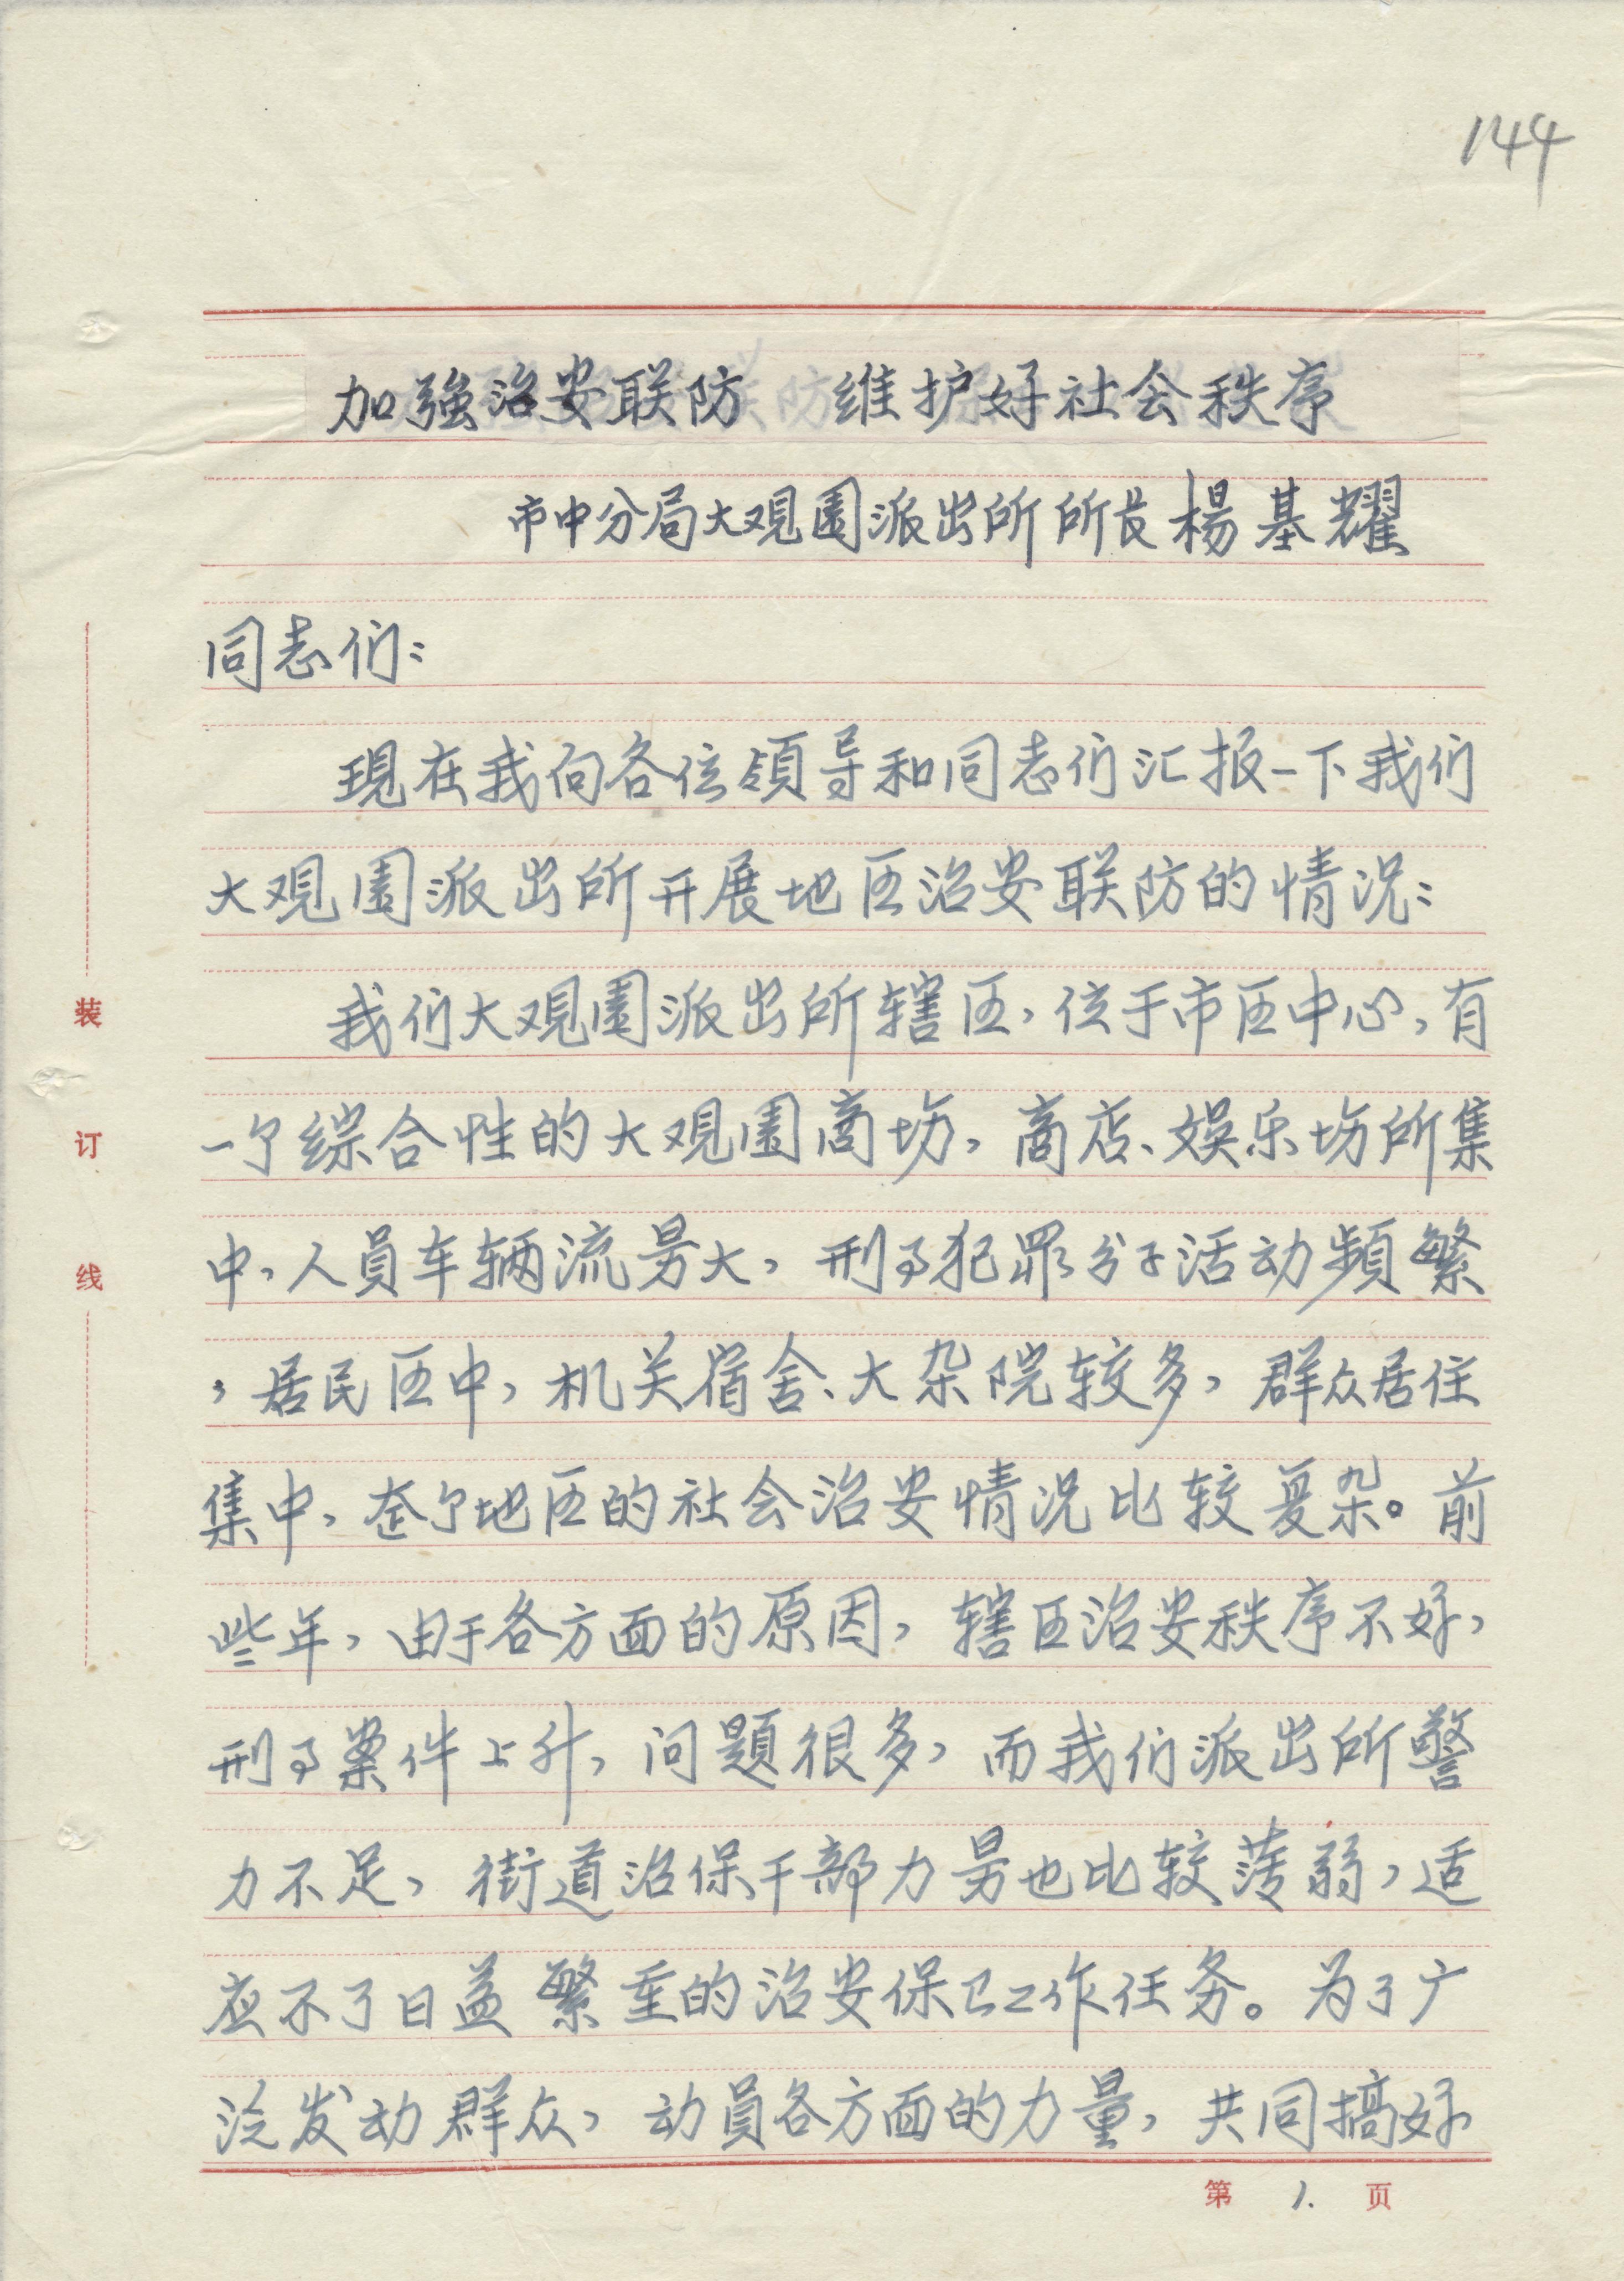 144
加強治安联防 维护好社会秩序
市中分局大观園派出所所长楊基耀
同志们：
現在我向各位領导和同志们汇报一下我们
大观園派出所开展地区治安联防的情况：
我们大观園派出所辖区，位于市区中心，有
一个综合性的大观園商场，商店、娱乐场所集
中，人員车辆流量大，刑事犯罪分子活动頻繁
，居民区中，机关宿舍、大杂院较多，群众居住
集中，整个地区的社会治安情况比较复杂。前
些年，由于各方面的原因，辖区治安秩序不好，
刑事案件上升，问題很多，而我们派出所警
力不足，街道治保干部力量也比较薄弱，适
应不了日益繁重的治安保卫工作任务。为了广
泛发动群众，动員各方面的力量，共同搞好
装
订
线
第 1. 页